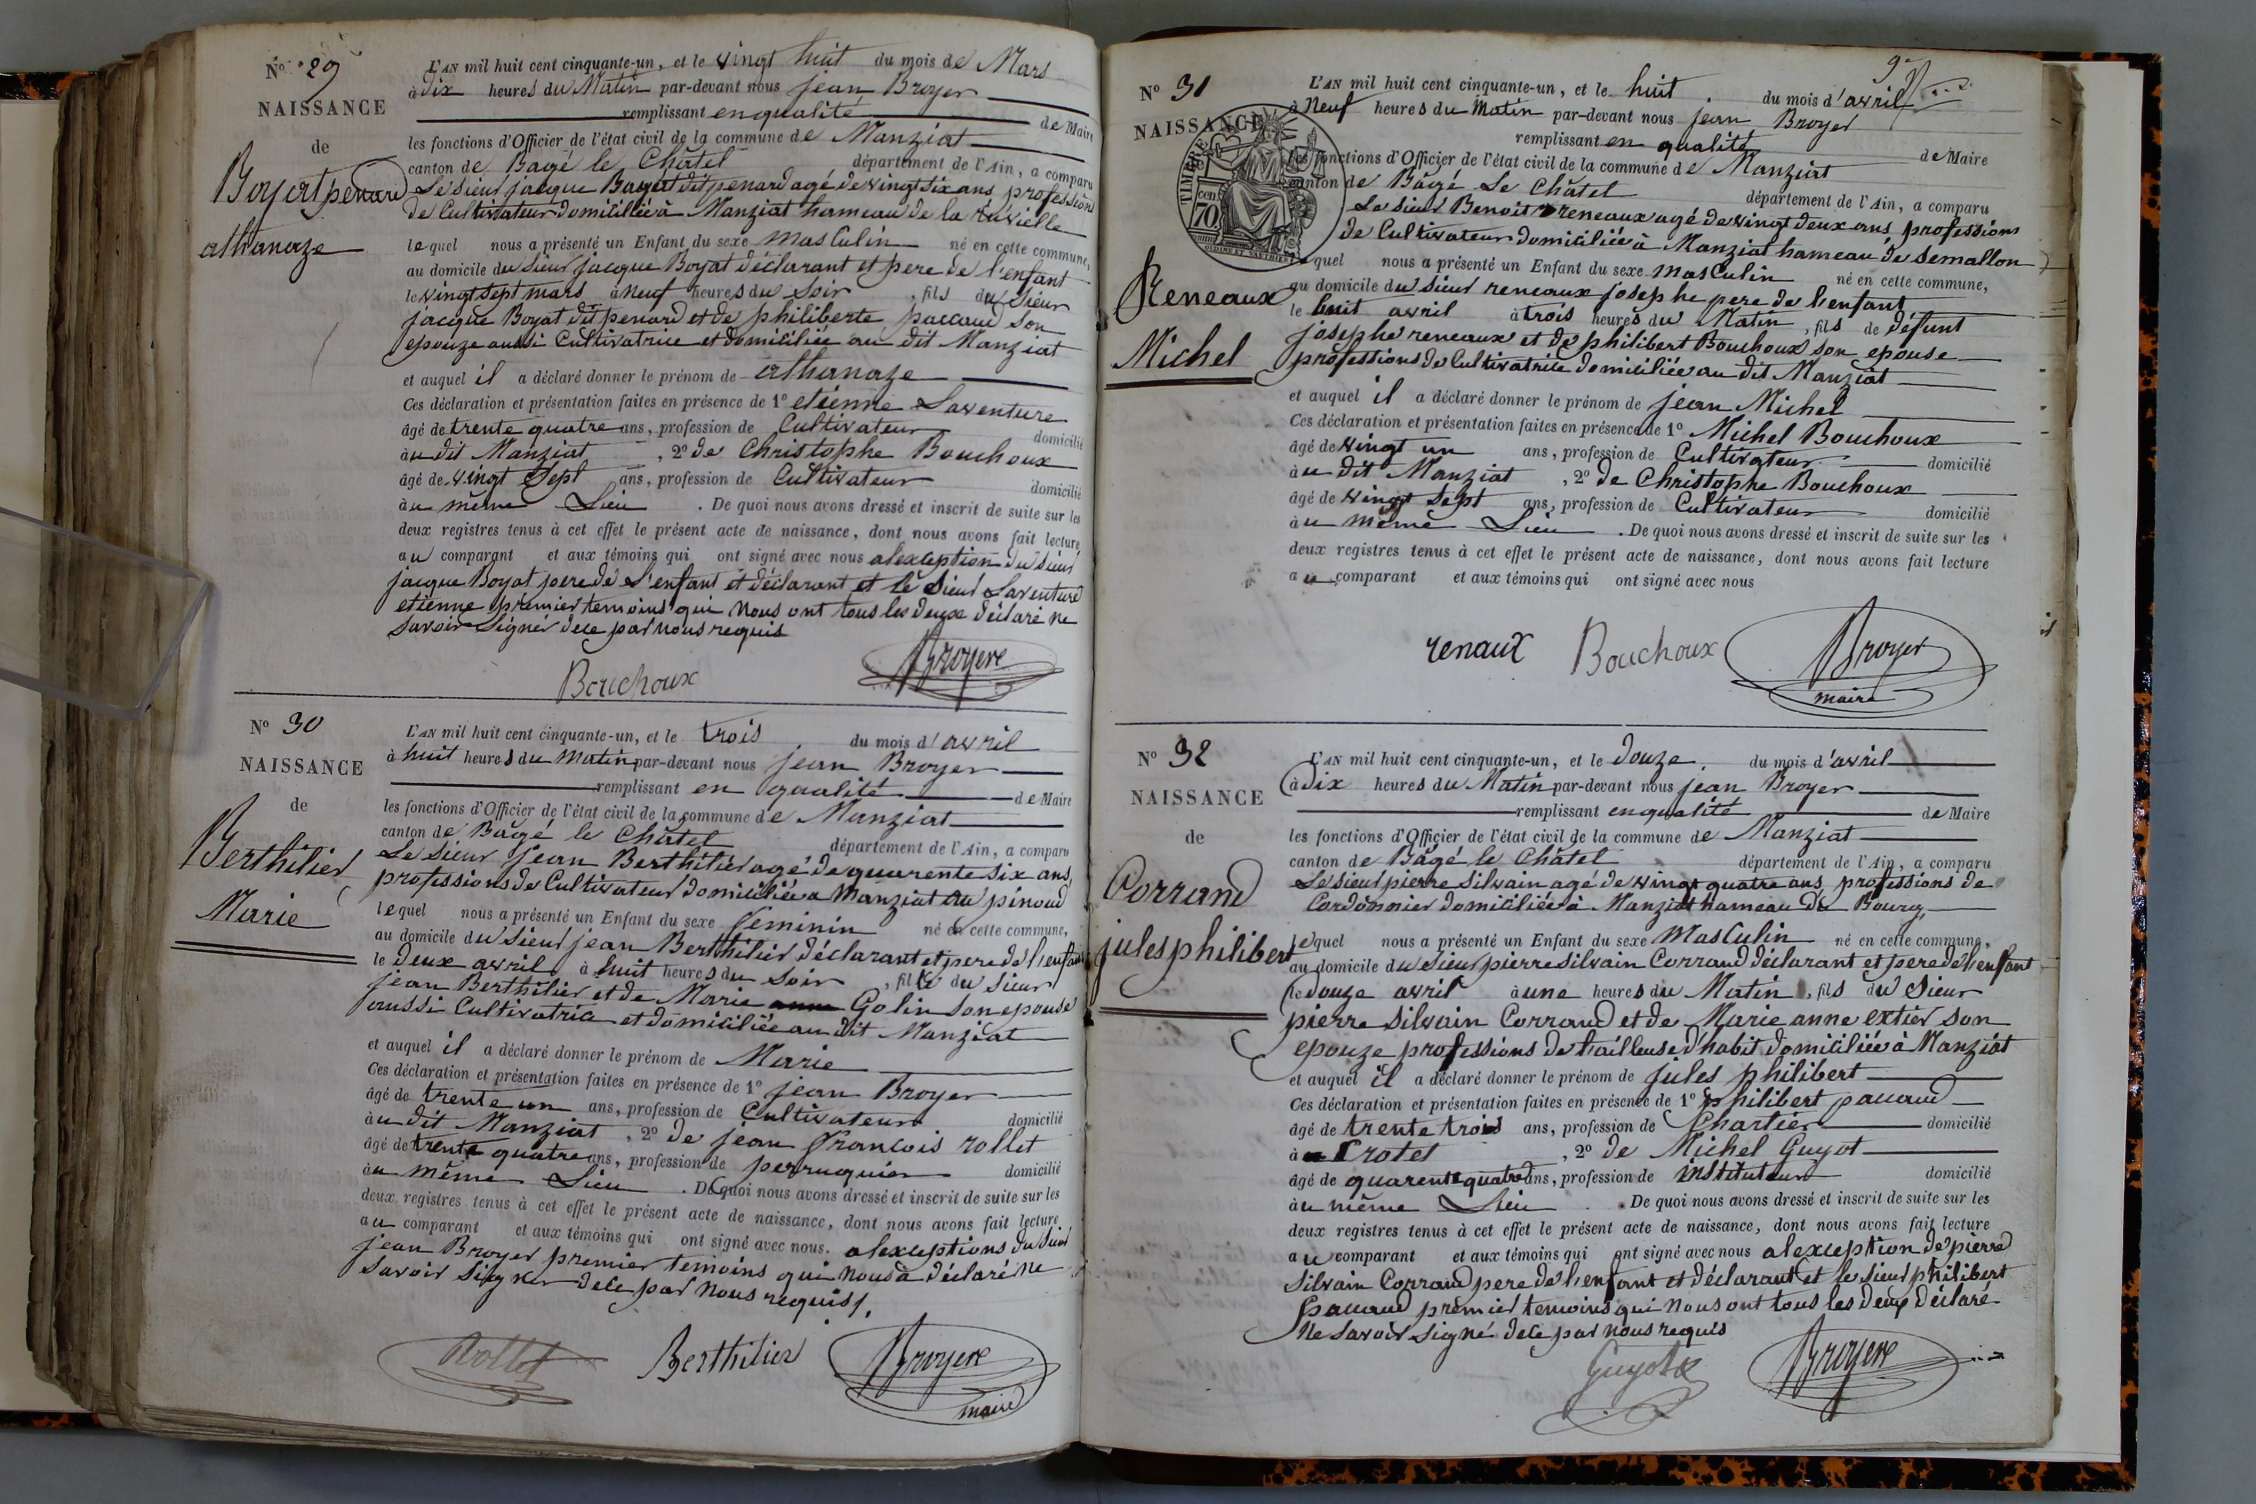 N° 29
NAISSANCE
de
Boyat penard
athanaze
L'AN mil huit cent cinquante-un, et le vingt huit du mois de Mars
à dix heures du Matin par-devant nous jean Broyer
remplissant en qualité de Maire
les fonctions d'Officier de l'état civil de la commune de Manziat
canton de Bagé le Châtel département de l'Ain, a comparu
Le sieur jacque Boyat dit penard agé de vingt six ans profession
de Cultivateur domiciliée à Manziat hameau de la
lequel nous a présenté un Enfant du sexe masCulin né en cette commune,
au domicile du sieur jacque Boyat déclarant et pere de l'enfant
le vingt sept mars à neuf heures du soir, fils du sieur
jacque Boyat dit penard et de philiberte paccaud son
epouze aussi Cultivatrice et domiciliée au dit Manziat
et auquel il a déclaré donner le prénom de athanaze
Ces déclaration et présentation faites en présence de 1° etienne Laventure
âgé de trente quatre ans, profession de Cultivateur domicilié
à u dit Manziat, 2° de Christophe Bouchoux
âgé de vingt Sept ans, profession de Cultivateur domicilié
à u même Lieu. De quoi nous avons dressé et inscrit de suite sur les
deux registres tenus à cet effet le présent acte de naissance, dont nous avons fait lecture
au comparant et aux témoins qui ont signé avec nous alexception du sieur
jacque Boyat pere de L'enfant et déclarant et le sieur Laventure
etienne premier temoins qui nous ont tous les deuxe déclaré ne
savoir signer dece par nous requis
Bouchoux Broyere
N° 30
NAISSANCE
de
Berthilier
Marie
L'AN mil huit cent cinquante-un, et le trois du mois d'avril
à huit heures du Matin par-devant nous jean Broyer
remplissant en qualité de Maire
les fonctions d'Officier de l'état civil de la commune de Manziat
canton de Bâgé le Châtel département de l'Ain, a comparu
Le sieur jean Berthilier agé de quarente six ans
professions de Cultivateur domiciliée a Manziat au pinoud
lequel nous a présenté un Enfant du sexe feminin né en cette commune,
au domicile du sieur jean Berthilier déclarant et pere de l'enfant
le deux avril à huit heures du soir, fille du sieur
jean Berthilier et de Marie Golin son epouse
aussi Cultivatrice et domiciliée au dit Manziat
et auquel il a déclaré donner le prénom de Marie
Ces déclaration et présentation faites en présence de 1° jean Broyer
âgé de trente un ans, profession de Cultivateur domicilié
à u dit Manziat, 2° de jean francois rollet
âgé de trente quatre ans, profession de perruquier domicilié
à u même Lieu. De quoi nous avons dressé et inscrit de suite sur les
deux registres tenus à cet effet le présent acte de naissance, dont nous avons fait lecture
au comparant et aux témoins qui ont signé avec nous. alexceptions du sieur
jean Broyer premier temoins qui nous a déclaré ne
savoir signer dece par nous requis
Rollet Berthilier Broyere
maire
9
N° 31
NAISSANCE
TIMBRE
70
Reneaux
Michel
L'AN mil huit cent cinquante-un, et le huit du mois d'avril
à Neuf heures du Matin par-devant nous jean Broyer
remplissant en qualité de Maire
les fonctions d'Officier de l'état civil de la commune de Manziat
canton de Bâgé Le Châtel département de l'Ain, a comparu
Le sieur Benoit reneaux agé de vingt deux ans professions
de Cultivateur domiciliée à Manziat hameau de semallon
lequel nous a présenté un Enfant du sexe masCulin né en cette commune,
au domicile du sieur reneaux josephe pere de l'enfant
le huit avril à trois heures du Matin, fils de défunt
josephe reneaux et de philibert Bouchoux son epouse
professions de Cultivatrice domiciliée au dit Manziat
et auquel il a déclaré donner le prénom de jean Michel
Ces déclaration et présentation faites en présence de 1° Michel Bouchoux
âgé de vingt un ans, profession de Cultivateur domicilié
à u dit Manziat, 2° de Christophe Bouchoux
âgé de vingt Sept ans, profession de Cultivateur domicilié
à u même Lieu. De quoi nous avons dressé et inscrit de suite sur les
deux registres tenus à cet effet le présent acte de naissance, dont nous avons fait lecture
au comparant et aux témoins qui ont signé avec nous
renaux Bouchoux Broyer
maire
N° 32
NAISSANCE
de
Corrand
jules philibert
L'AN mil huit cent cinquante-un, et le douze du mois d'avril
à Dix heures du Matin par-devant nous jean Broyer
remplissant en qualité de Maire
les fonctions d'Officier de l'état civil de la commune de Manziat
canton de Bâgé le Châtel département de l'Ain, a comparu
Le sieur pierre silvain agé de vingt quatre ans professions de
Cordonnier domiciliée à Manziat hameau du Bourg
lequel nous a présenté un Enfant du sexe MasCulin né en cette commune,
au domicile du sieur pierre silvain Corrand déclarant et pere de l'enfant
le douze avril à une heures du Matin, fils du sieur
pierre silvain Corrand et de Marie anne extier son
epouze professions de tailleuse d'habit domiciliée à Manziat
et auquel il a déclaré donner le prénom de jules philibert
Ces déclaration et présentation faites en présence de 1° philibert paccaud
âgé de trente trois ans, profession de Chartier domicilié
à Crotet, 2° de Michel Guyot
âgé de quarente quatre ans, profession de instituteur domicilié
à u même Lieu. De quoi nous avons dressé et inscrit de suite sur les
deux registres tenus à cet effet le présent acte de naissance, dont nous avons fait lecture
au comparant et aux témoins qui ont signé avec nous alexception de pierre
silvain Corrand pere de l'enfant et déclarant et le sieur philibert
paccaud premier temoins qui nous ont tous les deux déclaré
Ne savoir signé dece par nous requis
Guyot Broyere